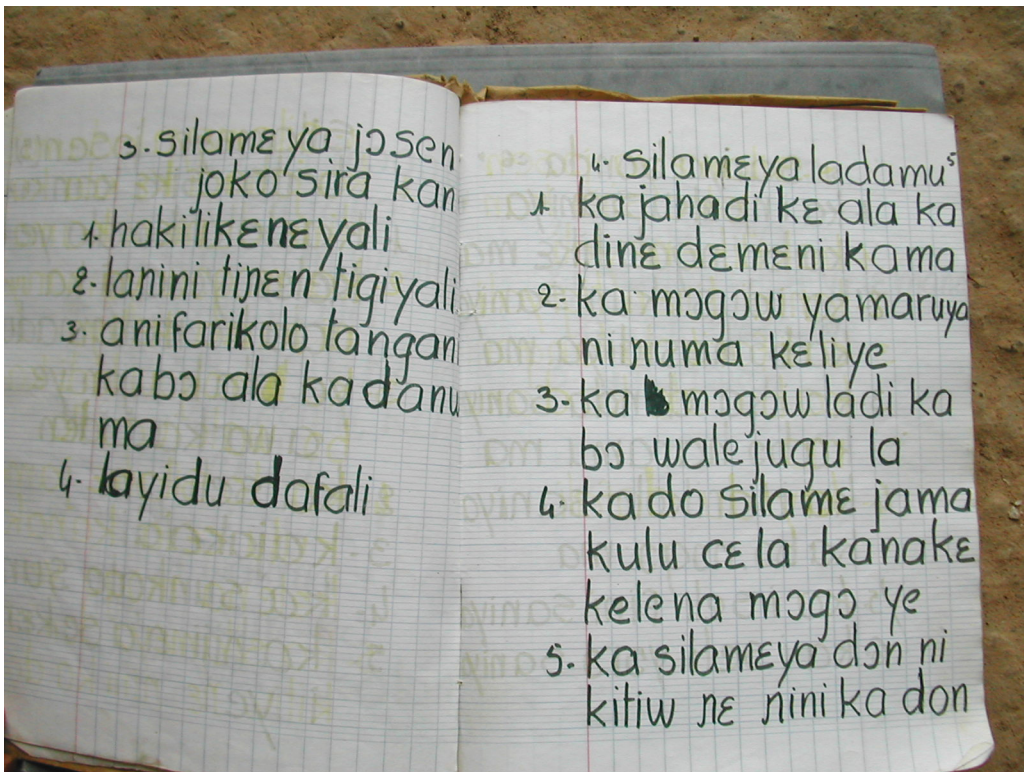 3. silamɛya jɔsen
joko sira kan
1. hakilikɛnɛyali
2. laɲini tiɲɛn tigiyali
3. ani farikolo tangan
kabɔ ala kadanu
ma
4. layidu dafali
4. silamɛya ladamu 5
1. ka jahadi kɛ ala ka
dinɛ dɛmɛni kama
2. ka mɔgɔw yamaruya
ni ɲuma kɛliye
3. ka mɔgɔw ladi ka
bɔ walejugu la
4. ka do silamɛ jama
kulu cɛ la kanakɛ
kelena mɔgɔ ye
5. ka silamɛya dɔn ni
kitiw ɲɛ ɲini ka don